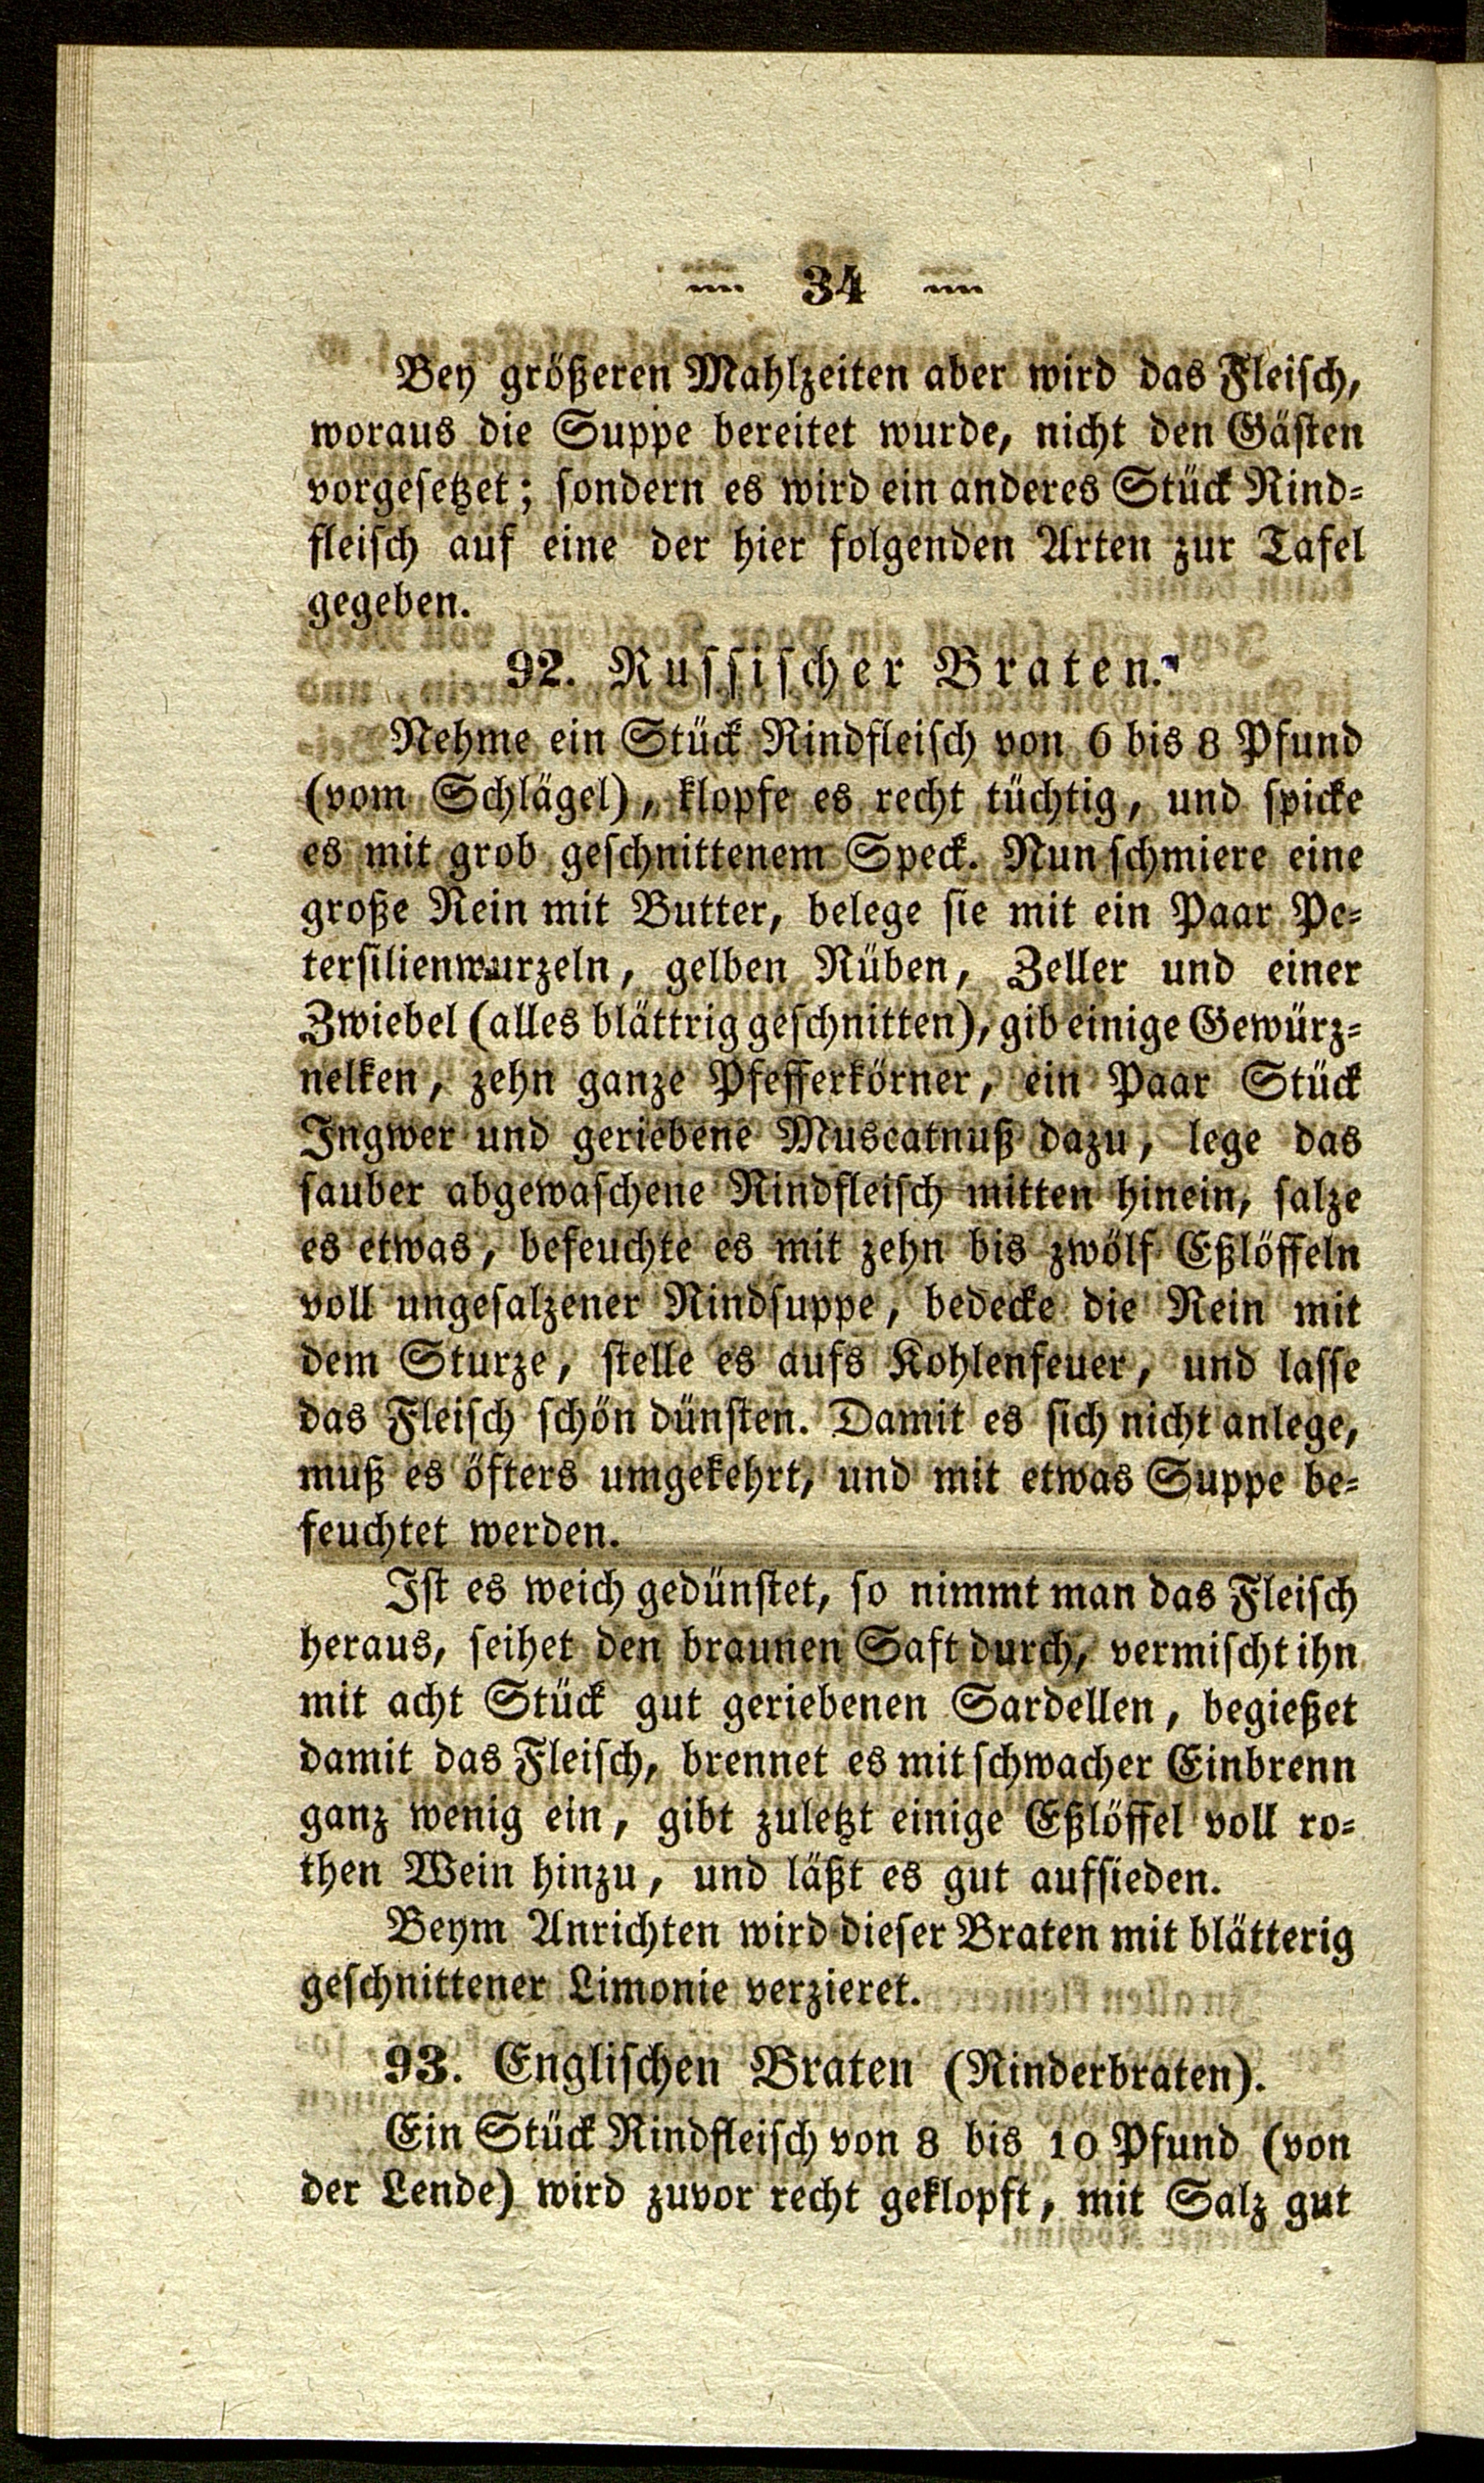 — 34 —
Bey größeren Mahlzeiten aber wird das Fleisch,
woraus die Suppe bereitet wurde, nicht den Gästen
vorgesetzet; sondern es wird ein anderes Stück Rind-
fleisch auf eine der hier folgenden Arten zur Tafel
gegeben.
92. Russischer Braten.
Nehme ein Stück Rindfleisch von 6 bis 8 Pfund
(vom Schlägel), klopfe es recht tüchtig, und spicke
es mit grob geschnittenem Speck. Nun schmiere eine
große Rein mit Butter, belege sie mit ein Paar Pe-
tersilienwurzeln, gelben Rüben, Zeller und einer
Zwiebel (alles blättrig geschnitten), gib einige Gewürz-
nelken, zehn ganze Pfefferkörner, ein Paar Stück
Ingwer und geriebene Muscatnuß dazu, lege das
sauber abgewaschene Rindfleisch mitten hinein, salze
es etwas, befeuchte es mit zehn bis zwölf Eßlöffeln
voll ungesalzener Rindsuppe, bedecke die Rein mit
dem Sturze, stelle es aufs Kohlenfeuer, und lasse
das Fleisch schön dünsten. Damit es sich nicht anlege,
muß es öfters umgekehrt, und mit etwas Suppe be-
feuchtet werden.
Ist es weich gedünstet, so nimmt man das Fleisch
heraus, seihet den braunen Saft durch, vermischt ihn
mit acht Stück gut geriebenen Sardellen, begießet
damit das Fleisch, brennet es mit schwacher Einbrenn
ganz wenig ein, gibt zuletzt einige Eßlöffel voll ro-
then Wein hinzu, und läßt es gut aufsieden.
Beym Anrichten wird dieser Braten mit blätterig
geschnittener Limonie verzieret.
93. Englischen Braten (Rinderbraten).
Ein Stück Rindfleisch von 8 bis 10 Pfund (von
der Lende) wird zuvor recht geklopft, mit Salz gut